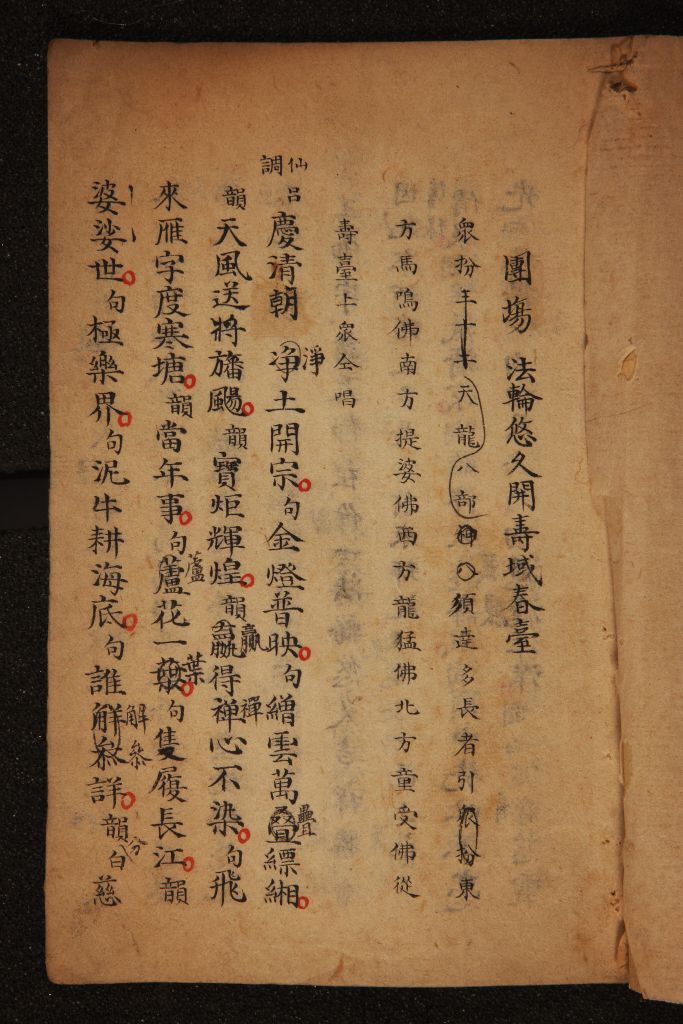 團塲 法輪悠久開壽域春臺
衆扮天龍八部 須達多長者引衆扮東
方馬鳴佛南方提婆佛西方龍猛佛北方童受佛從
壽臺上衆仝唱
仙呂調 慶清朝 淨淨土開宗句金燈普映句繒雲萬疊疊縹緗
韻天風送將旛颺韻寶炬輝煌韻贏贏得禪禪心不染句飛
來雁字度寒塘韻當年事句蘆蘆花一葉葉句隻履長江韻
婆娑世句極樂界句泥牛耕海底句誰解解叅參詳韻分白慈